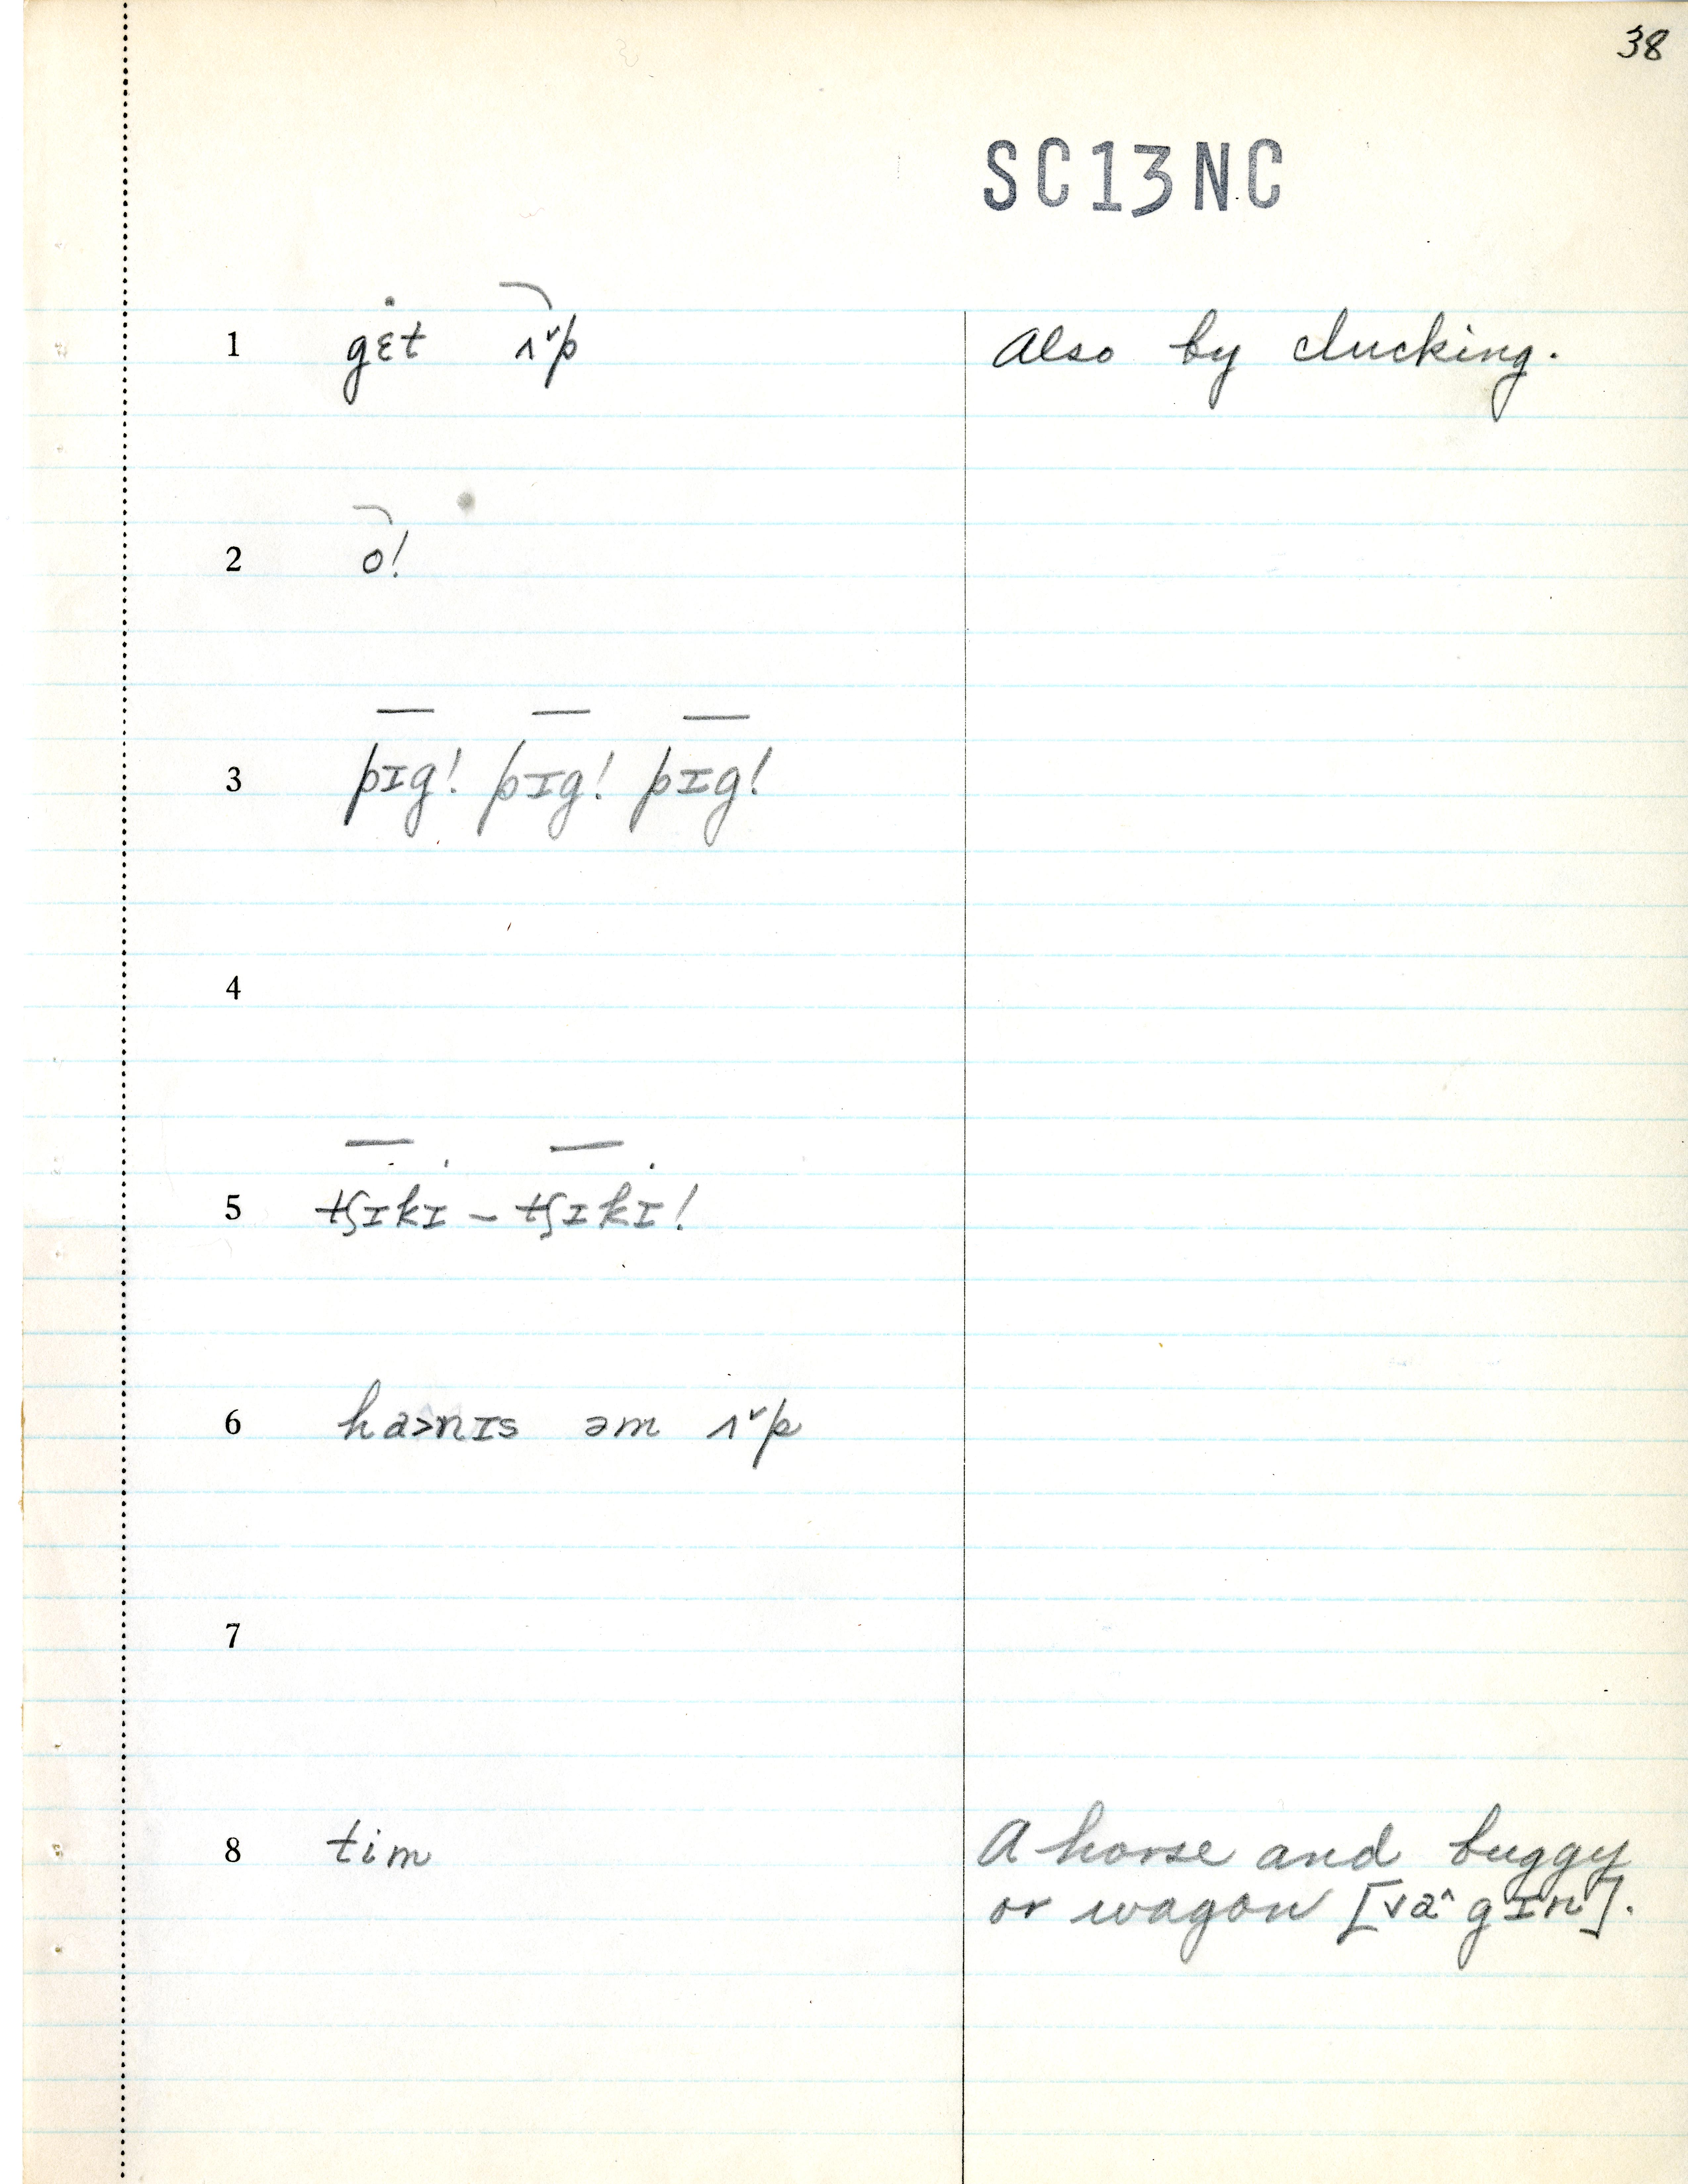 38
SC13NC
1 gɛt ʌ˅p Also by clucking.
2 o!
3 pɪg! pɪg! pɪg!
4
5 tʃɪkɪ – tʃɪkɪ!
6 ha>nɪs əm ʌ˅p
7
8 tim A horse and buggy
or wagon [va^gɪn].